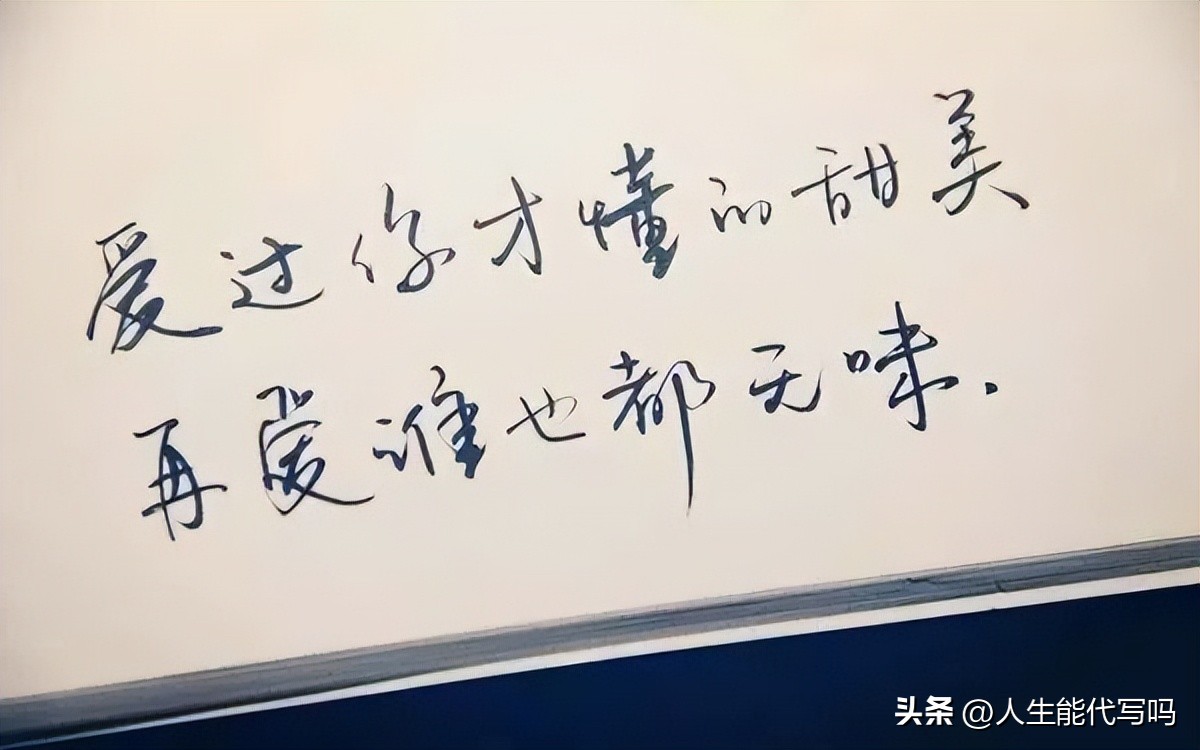 爱过你才懂的甜美
再爱谁也都无味.
头条 @人生能代写吗